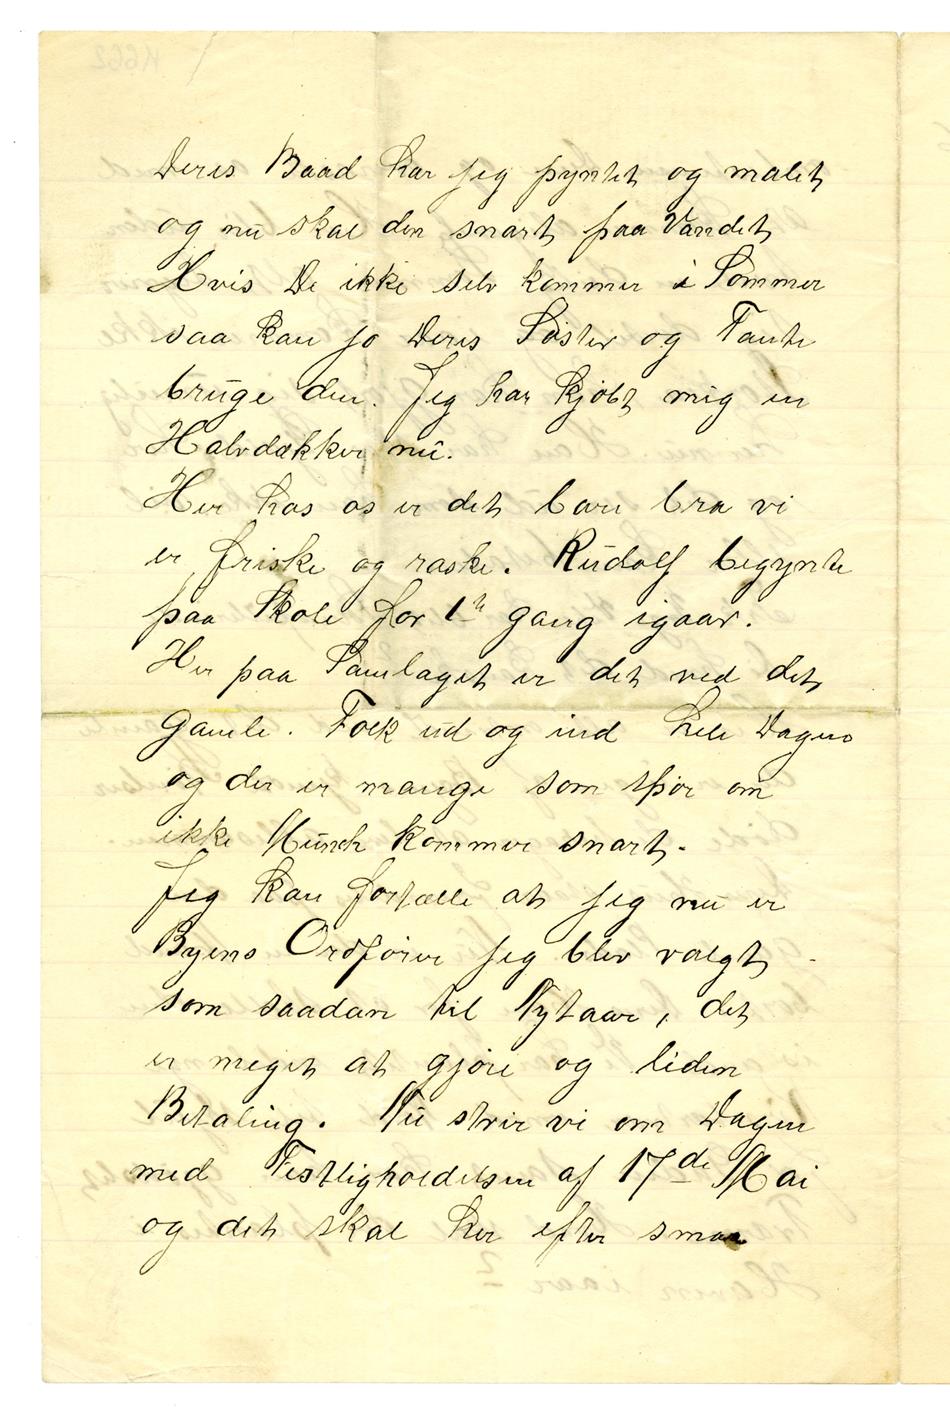 Deres Baad har jeg pyntet og malet
og nu skal den snart paa Vandet
Hvis De ikke selv kommer i Sommer
saa kan jo Deres Søster og Tante
bruge den. Jeg har kjøbt mig en
Halvdækker nu.
Her hos os er det bare bra vi
er friske og raske. Rudolf begynte
paa Skole for 1ste gang igaar.
Her paa Samlaget er det ved det
gamle. Folk ud og ind hele Dagen
og der er mange som spør om
ikke Munch kommer snart.
Jeg kan fortælle at jeg nu er
Byens Ordfører jeg blev valgt
som saadan til Nytaar, det
er meget at gjøre og liden
Betaling. Nu strir vi om Dagen
med Festligholdelsen af 17de Mai
og det skal her efter smaa
K662